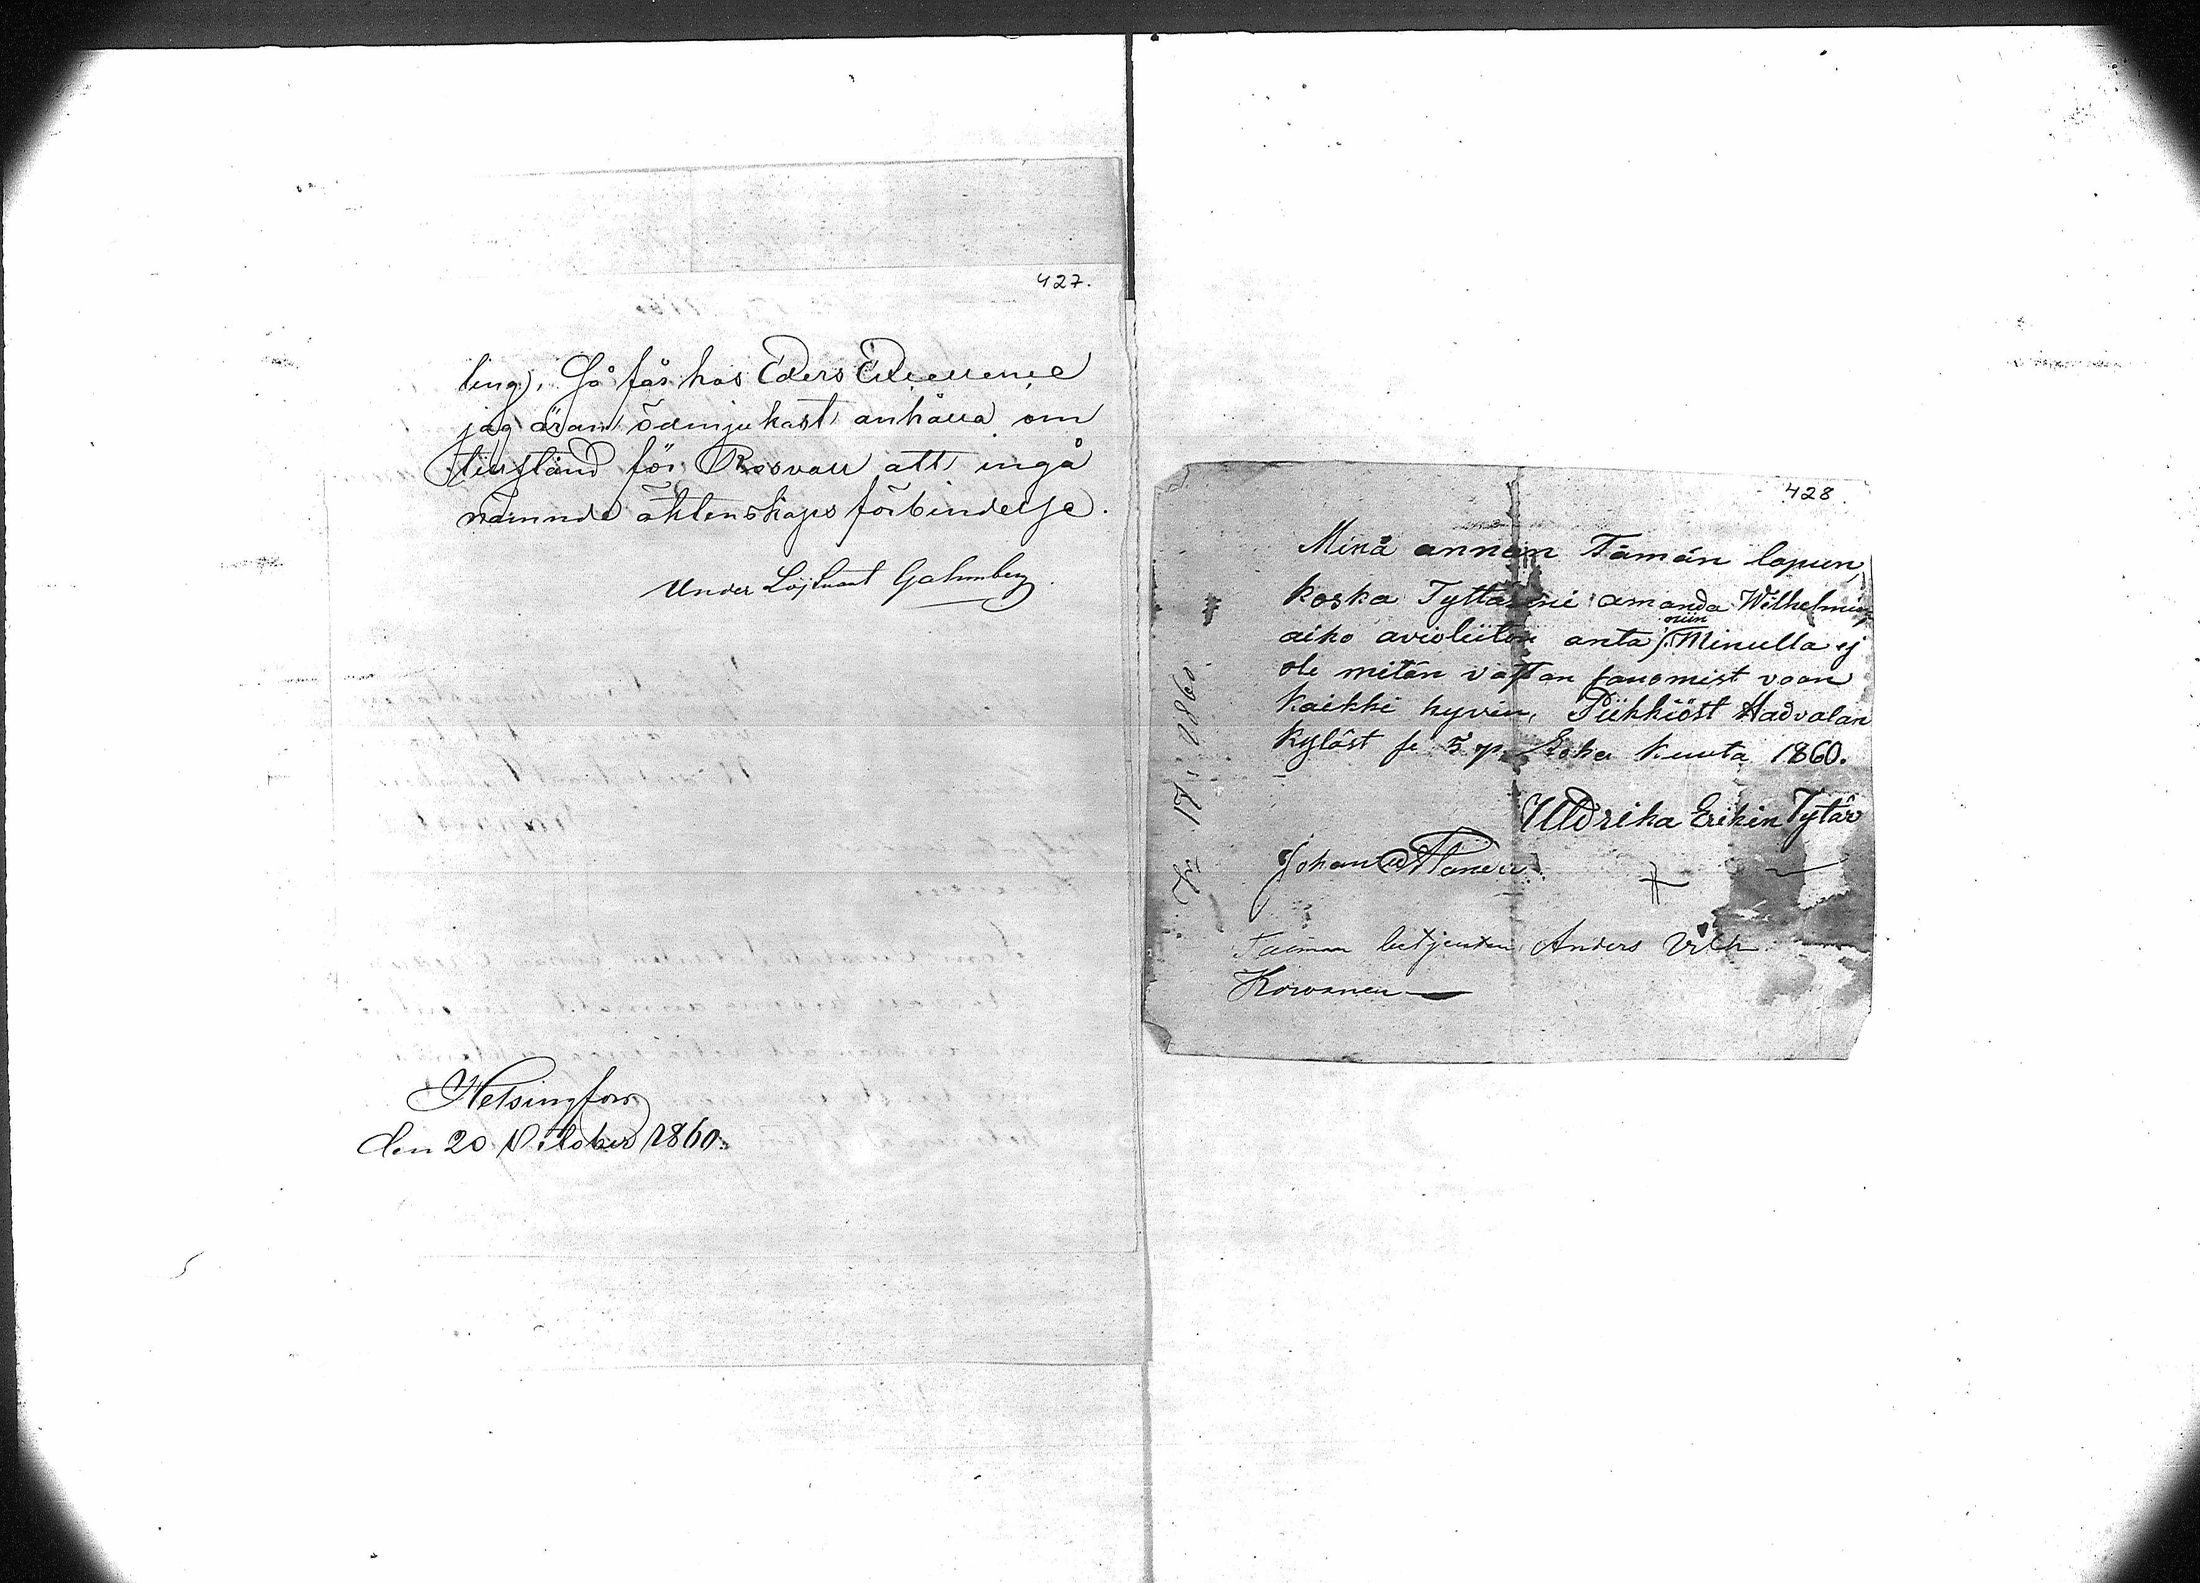 427.
ling), Så får hos Eders Excellence
jag äran ödmjukast anhålla om
tillstånd för Rosvall att ingå
nämnde äktenskaps förbindelse.
Under Löjtnant
Helsingfors
den 20 October 1860.
428.
Minä annan Tämän lapun,
koska Tyttäreni amanda Wilhelmin
aiko avioliiton anta, niin Minulla ej
ole mitän vastan sanomist vaan
kaikki hyvin, Piikkiöst Hadvalan
kyläst se 5 p. Loka kuuta 1860.
Ulldrika Erikin Tytär
Johan
Anders Vilh
Korvanen
1860